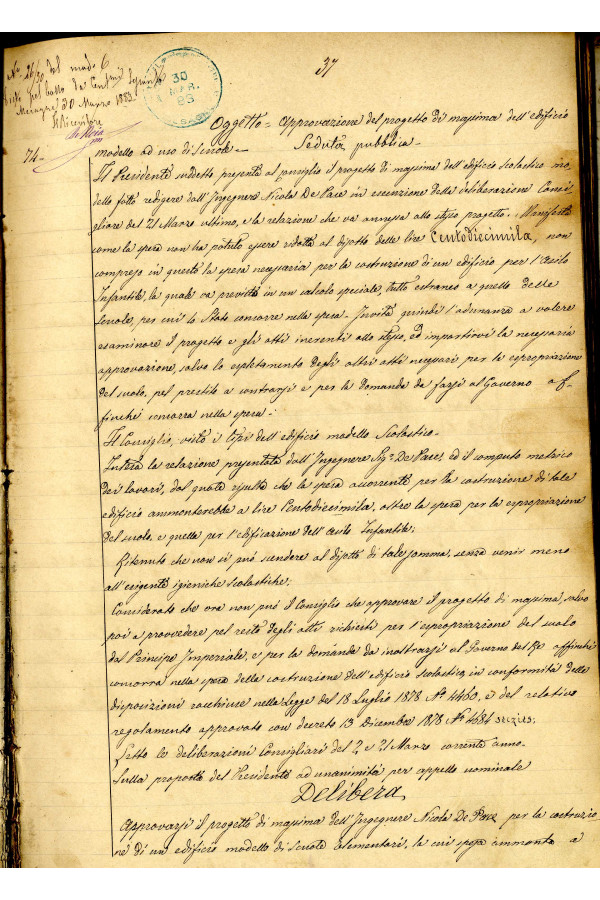 37
N.° 26/30 del mod. 6
30 Marzo 1883
Il Ricevitore
30 MAR. 83
Oggetto = Approvazione del progetto di massima dell'edificio
74 = modello ad uso di scuole = Seduta pubblica =
Il Presidente suddetto presenta al consiglio il progetto di massima dell'edificio scolastico mo,
dello fatto redigere dall'Ingegnere Nicola De Pace in esecuzione della deliberazione Consi,
gliare del 21 Marzo ultimo, e la relazione che va annessa allo stesso progetto = Manifesta
come la spesa non ha potuto essere ridotta al disotto delle lire Centodiecimila, non
compresa in questa la spesa necessaria per la costruzione di un edificio per l'Asilo
Infantile, la quale va prevista in un calcolo speciale tutto estraneo a quello delle
scuole, per cui lo Stato concorre nella spesa = Invita quindi l'adunanza a volere
esaminare il progetto e gli atti inerenti allo stesso, ed impartirvi la necessaria
approvazione, salvo lo espletamento degli altri atti necessari per la espropriazione
del suolo, pel prestito a contrarsi e per la domanda da farsi al Governo af,
finché concorra nella spesa =
Il Consiglio, visto i tipi dell'edificio modello Scolastico =
Intesa la relazione presentata dall'Ingegnere Sig.r De Pace, ed il computo metrico
dei lavori, dal quale risulta che la spesa occorrente per la costruzione di tale
edificio ammonterebbe a lire Centodiecimila, oltre la spesa per la espropriazione
del suolo, e quella per l'edificazione dell'Asilo Infantile;
Ritenuto che non si può scendere al disotto di tale somma, senza venir meno
all'esigenze igieniche scolastiche;
Considerato che ora non può il Consiglio che approvare il progetto di massima, salvo
poi a provvedere pel resto degli atti richiesti per l'espropriazione del suolo
dal Principe Imperiale, e per la domanda da inoltrarsi al Governo del Re affinché
concorra nella spesa della costruzione dell'edificio scolastico, in conformità delle
disposizioni racchiuse nella Legge del 18 Luglio 1878 N° 4460, e del relativo
regolamento approvato con decreto 13 Dicembre 1878 N° 4684
Letto le deliberazioni Consigliari del 2 e 21 Marzo corrente anno =
Sulla proposta del Presidente ad unanimità per appello nominale
Delibera
Approvarsi il progetto di massima dell'Ingegnere Nicola De Pace per la costruzio
ne di un edificio modello di scuole elementari, la cui spesa ammonta a